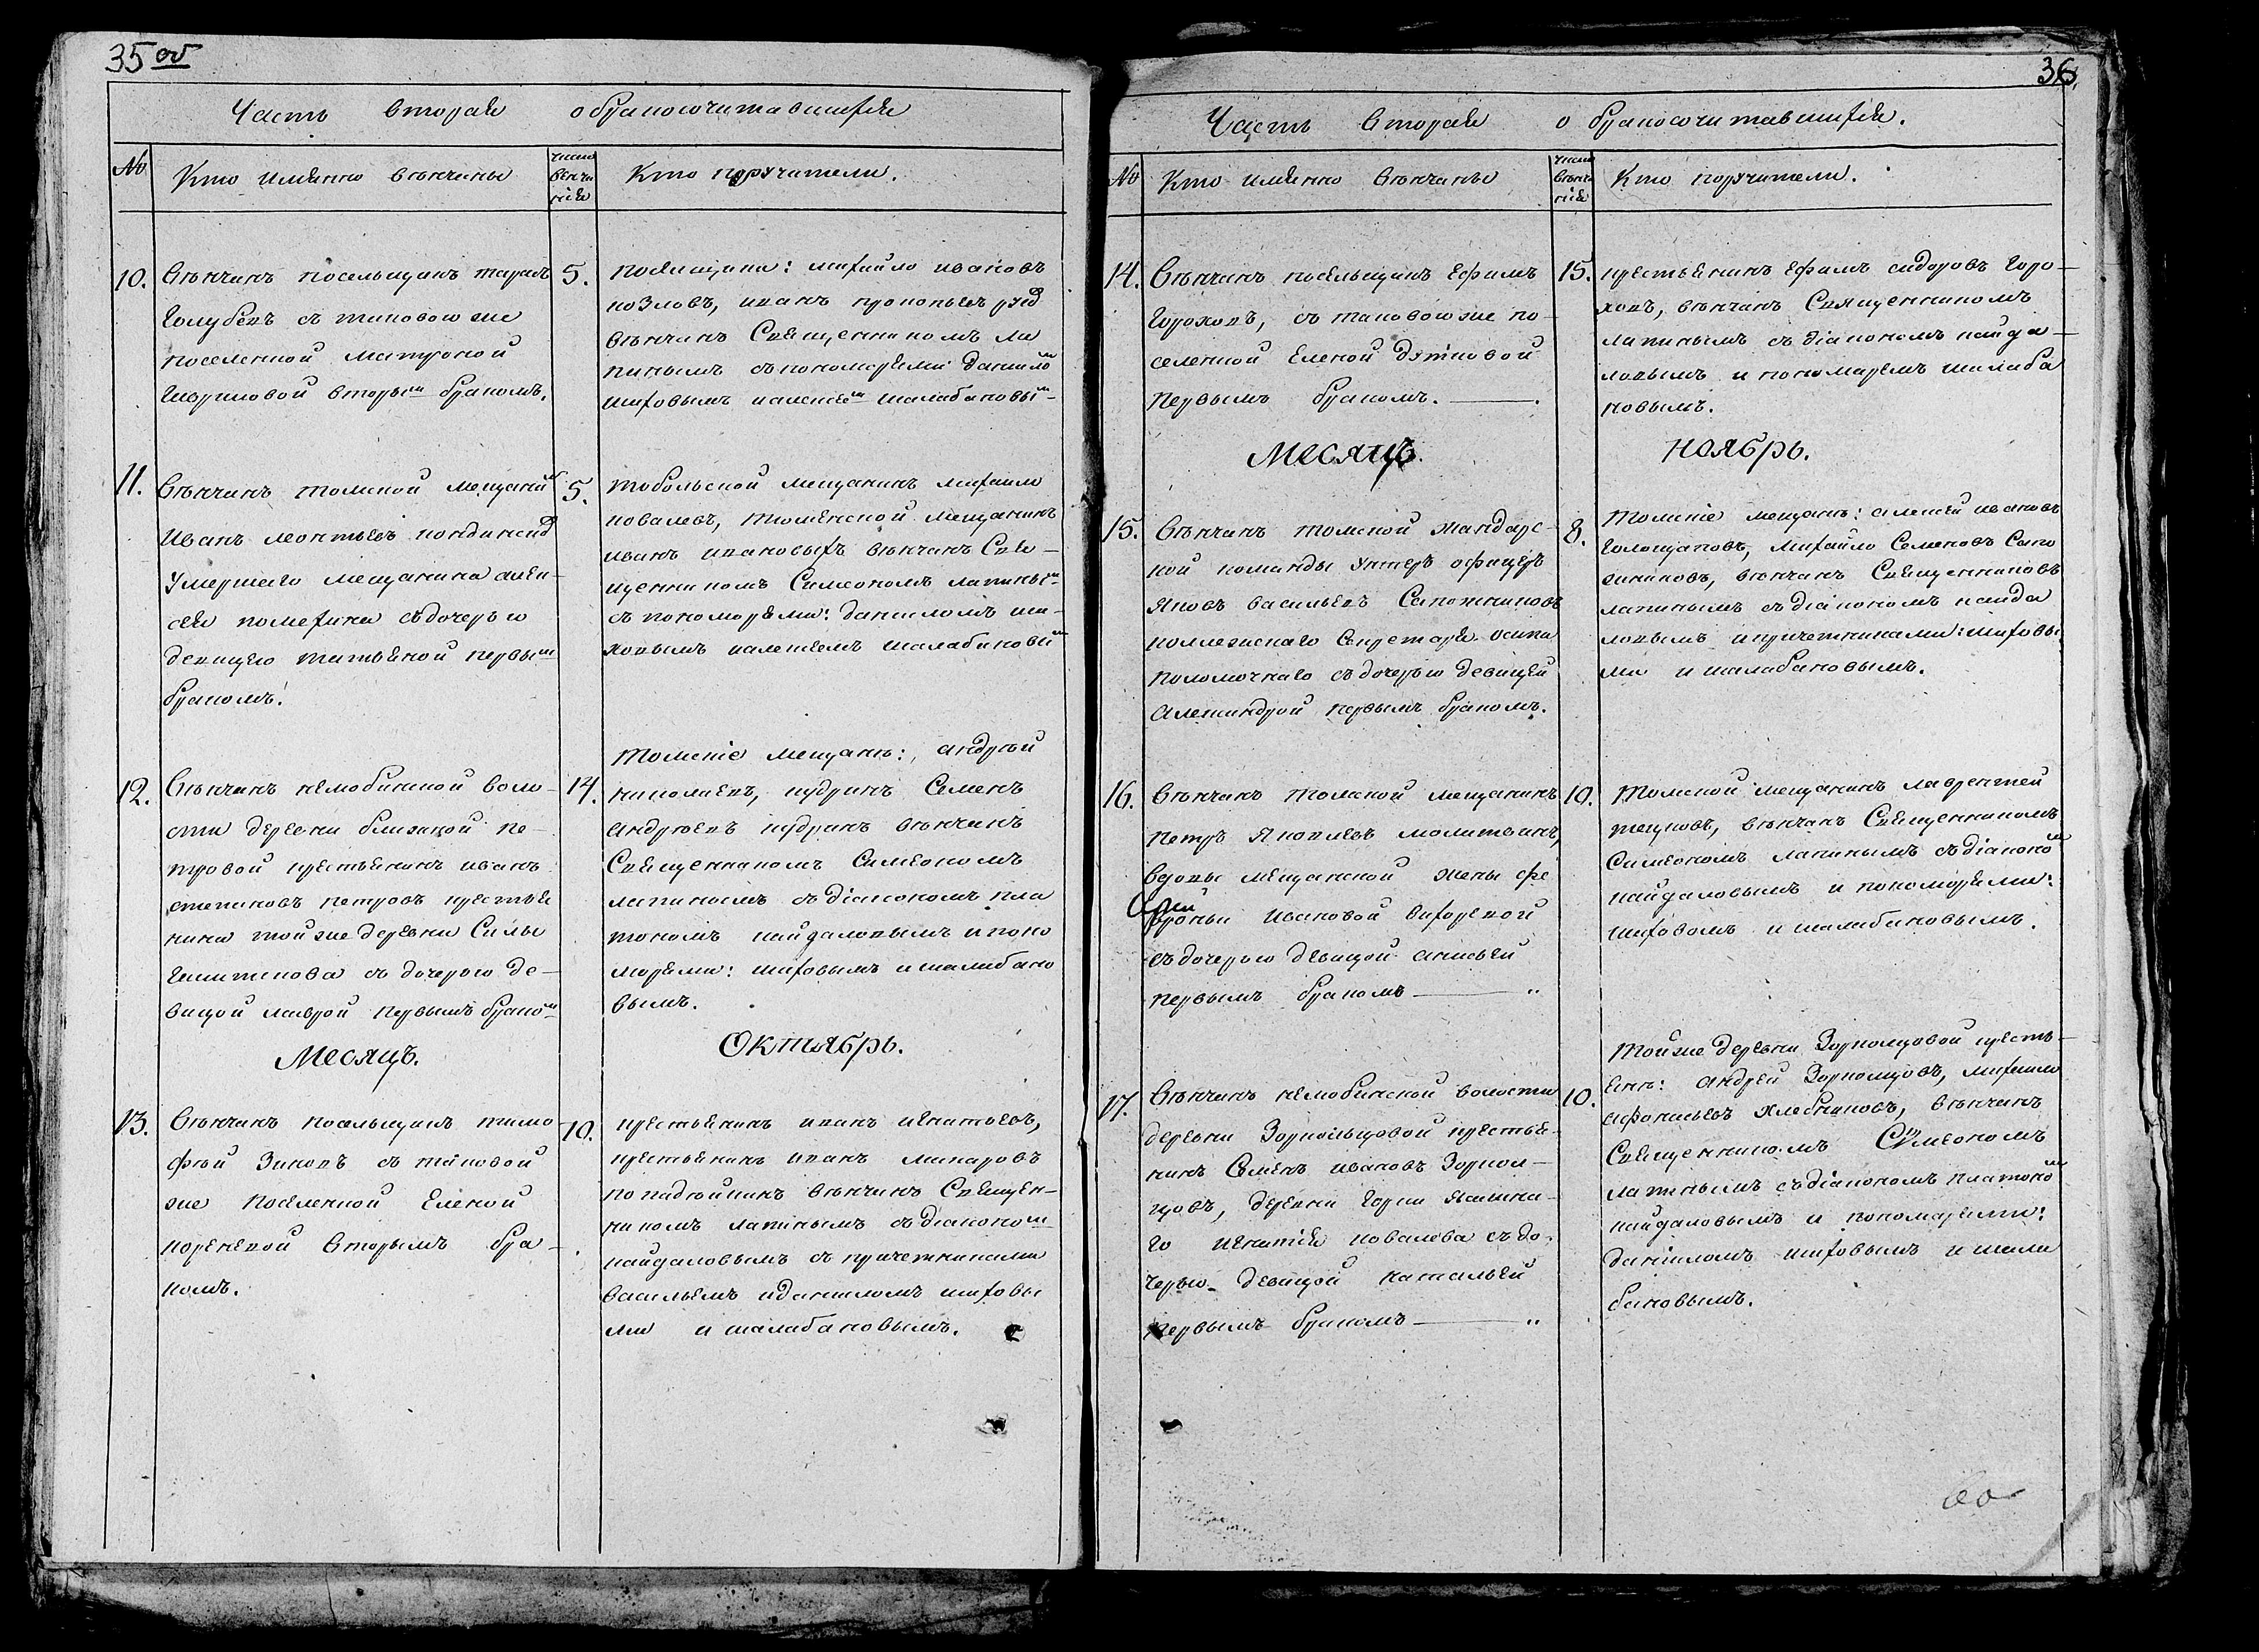 35 об
Часть вторая о бракосочитавшихся
№ Кто имянно венчаны число венча нія Кто поручители.
10. Венчанъ посельщикъ тарасъ
Голубевъ съ таковою же
поселенной матроной
Гавриловой вторым бракомъ.
5. посельщики: михайло ивановъ
козловъ, иванъ прокопьев
венчанъ Священникомъ ла
пинымъ съ пономарями данило
шиховымъ и алексеем шалабановым
11. Венчанъ томской мещанин
Иванъ леонтьевъ
умершего мещанина алек-
сея с дочерью
девицею татьяной первым
бракомъ.
5. тобольской мещанинъ михайло
ковалевъ, тюменской мещанинъ
иванъ ивановыхъ венчанъ Свя-
щенникомъ Симеономъ лапиным
съ пономорями: даниломъ ши-
ховымъ и алексеемъ шалабановым
12. Венчанъ нелюбинской воло-
сти деревни близкой пе-
тровой крестьянинъ иванъ
степановъ петровъ крестья
нина той же деревни Силы
съ дочерью де-
вицой маврой первымъ браком
14. томскіе мещане: андрей
николаевъ, кудринъ Семенъ
андреевъ кудринъ венчанъ
Священникомъ Симеономъ
лапинымъ съ діакономъ пла
тономъ кайдаловымъ и поно
морями: шиховымъ и шалабано
вымъ.
Месяцъ. Октябрь.
13. Венчанъ посельщикъ тимо
фей Зиновъ съ таковой
же поселенной Еленой
кореневой вторымъ бра-
комъ.
10. крестьянинъ иванъ игнатьевъ,
крестьянинъ иванъ макаровъ
венчанъ Священ-
никомъ лапинымъ съ діаконом
кайдаловымъ съ причетниками
васильемъ и даниломъ шиховы
ми и шалабановымъ.
36.
Часть вторая о бракосочитавшихся.
№ Кто имянно венчаны число венча нія Кто поручители.
14. Венчанъ посельщикъ Ефимъ
Гороховъ, съ таковою же по-
селенной Еленой дятковой
первымъ бракомъ.
15. крестьянинъ Ефимъ сидоровъ Горо-
ховъ, венчанъ Священникомъ
лапинымъ съ діакономъ кайда-
ловымъ и пономаремъ шалаба
новымъ.
Месяцъ. ноябрь.
15. Венчанъ томской жандарс-
кой команды унтеръ офицеръ
яковъ васильевъ Сапожниковъ
коллежскаго Секретаря осипа
коломочнаго съ дочерью девицей
александрой первымъ бракомъ.
8. томскіе мещане: алексей ивановъ
Голощаповъ, михайло Семеновъ Сапо
жниковъ, венчанъ Священниковъ
лапинымъ съ діакономъ кайда
ловымъ и причетниками: шиховы
ми и шалабановымъ.
16. венчанъ томской мещанинъ
петръ яковлевъ молитвинъ,
вдовы мещанской жены фе
вроньи ивановой вихоревой
съ дочерью девицой анисьей
первымъ бракомъ
10. томской мещанинъ лаврентей
венчанъ Священникомъ
Симеономъ лапинымъ съ діаконом
кайдаловымъ и пономорями:
шиховомъ и шалабановымъ.
17. Венчанъ нелюбинской волости
деревни Зоркольцовой крестья-
нинъ Семенъ ивановъ Зоркол-
цовъ, деревни
го игнатія ковалева съ до-
черью девицой натальей
первымъ бракомъ
10. той же деревни Зорколцовой кресть-
яне: андрей Зорколцовъ, михайло
афонасьевъ хлебниковъ, венчанъ
Священникомъ Симеономъ
лапинымъ съ діакономъ платоном
кайдаловымъ и пономарями:
даниломъ шиховымъ и шала
бановымъ.